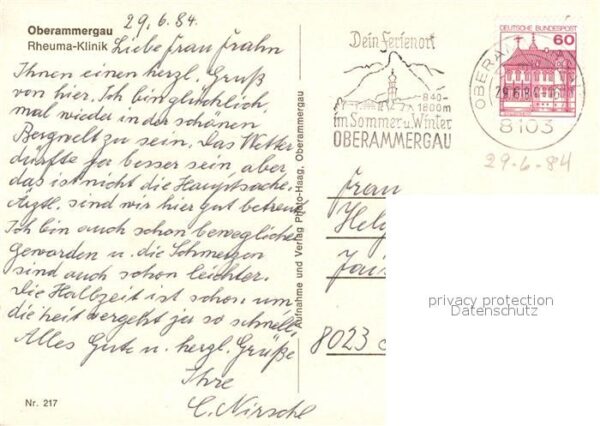 29.6.84.
Oberammergau
Rheuma-Klinik
Liebe Frau Frahn
Ihnen einen herzl. Gruß
von hier. Ich bin glücklich,
mal wieder in der schönen
Bergwelt zu sein. Das Wetter
dürfte ja besser sein, aber
das ist nicht die Hauptsache.
Ärztl. sind wir hier gut betreut
Ich bin auch schon beweglicher
geworden u. die Schmerzen
sind auch schon leichter.
Die Halbzeit ist schon um,
die Zeit vergeht ja so schnell,
Alles Gute u. herzl. Grüße
Ihre
C. Nirschl
Nr. 217
Aufnahme und Verlag Photo-Haag, Oberammergau
Dein Ferienort
840-
1800m
im Sommer u. Winter
OBERAMMERGAU
DEUTSCHE BUNDESPOST
60
OBERAM
29.6.84
8103
29.6.84
Frau
Helg
8023
privacy protection
Datenschutz